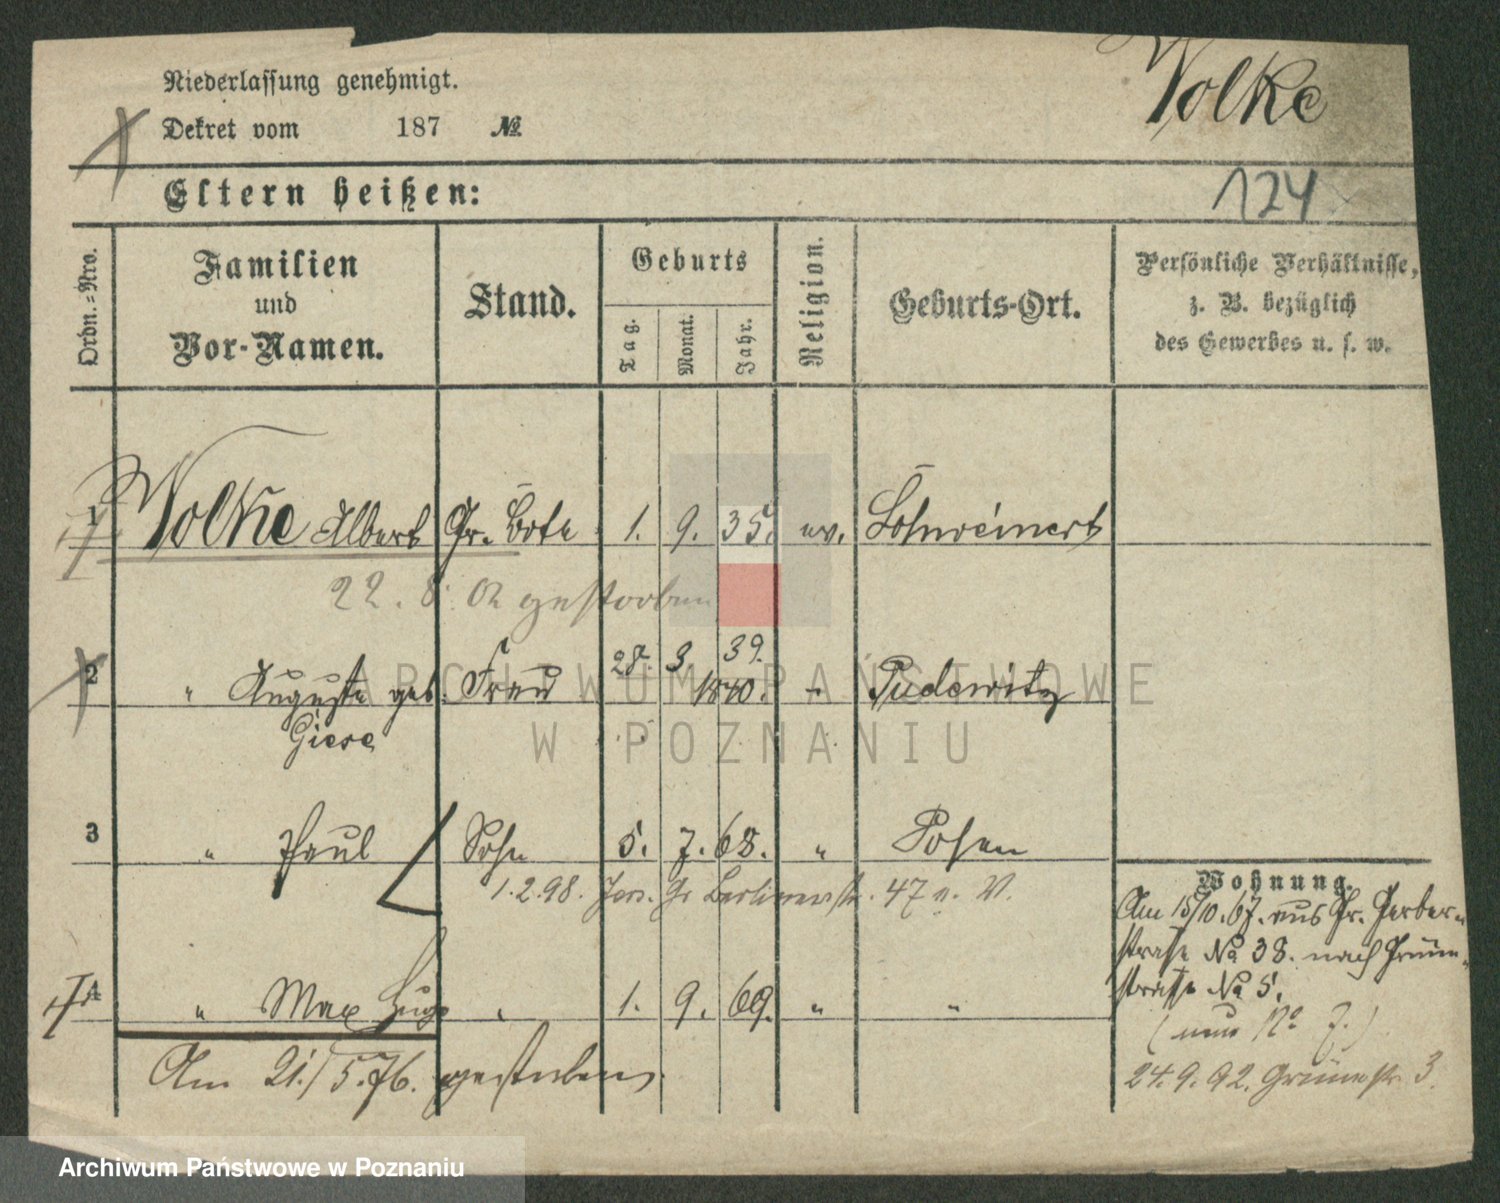 Niederlassung genehmigt.
Wolke
Dekret vom 187 №
Eltern heißen:
124
Ordn.-Nro.
Familien
und
Vor-Namen.
Stand.
Geburts
Tag.
Monat.
Jahr.
Religion.
Geburts-Ort.
Persönliche Verhältnisse,
z. B. bezüglich
des Gewerbes u. s. w.
1 Wolke Albert Gr. Bote 1. 9. 35. ev. Schweinert
22. 8. 02 gestorben
2 " Auguste geb. Frau 28. 3 39. 1840. " Pudewitz
Giese
3 " Paul Sohn 5. 7. 68. " Posen
1. 2. 98. Gr Berlinerstr. 47 n. W.
4 " Max Hugo " 1. 9. 69. " "
Am 21./5.76. gestorben.
Wohnung.
Am 15/10.67. aus Gr. Gerber-
straße No 38. nach Grün-
straße No 5.
(nun No 7.)
24.9.92. Grünestr 3.
ARCHIWUM PAŃSTWOWE
W POZNANIU
Archiwum Państwowe w Poznaniu